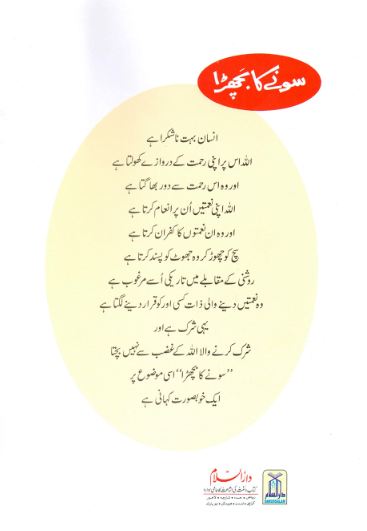 سونے کا بچھڑا
انسان بہت ناشکرا ہے
اللہ اس پر اپنی رحمت کے دروازے کھولتا ہے
اور وہ اس رحمت سے دور بھاگتا ہے
اللہ اپنی نعمتیں اُن پر انعام کرتا ہے
اور وہ ان نعمتوں کا کفران کرتا ہے
سچ کو چھوڑ کر وہ جھوٹ کو پسند کرتا ہے
روشنی کے مقابلے میں تاریکی اُسے مرغوب ہے
وہ نعمتیں دینے والی ذات کسی اور کو قرار دینے لگتا ہے
یہی شرک ہے اور
شرک کرنے والا اللہ کے غضب سے نہیں بچتا
”سونے کا بچھڑا“ اسی موضوع پر
ایک خوبصورت کہانی ہے
دارالسلام
کتاب و سنت کی اشاعت کا عالمی ادارہ
دارالسلام
DARUSSALAM